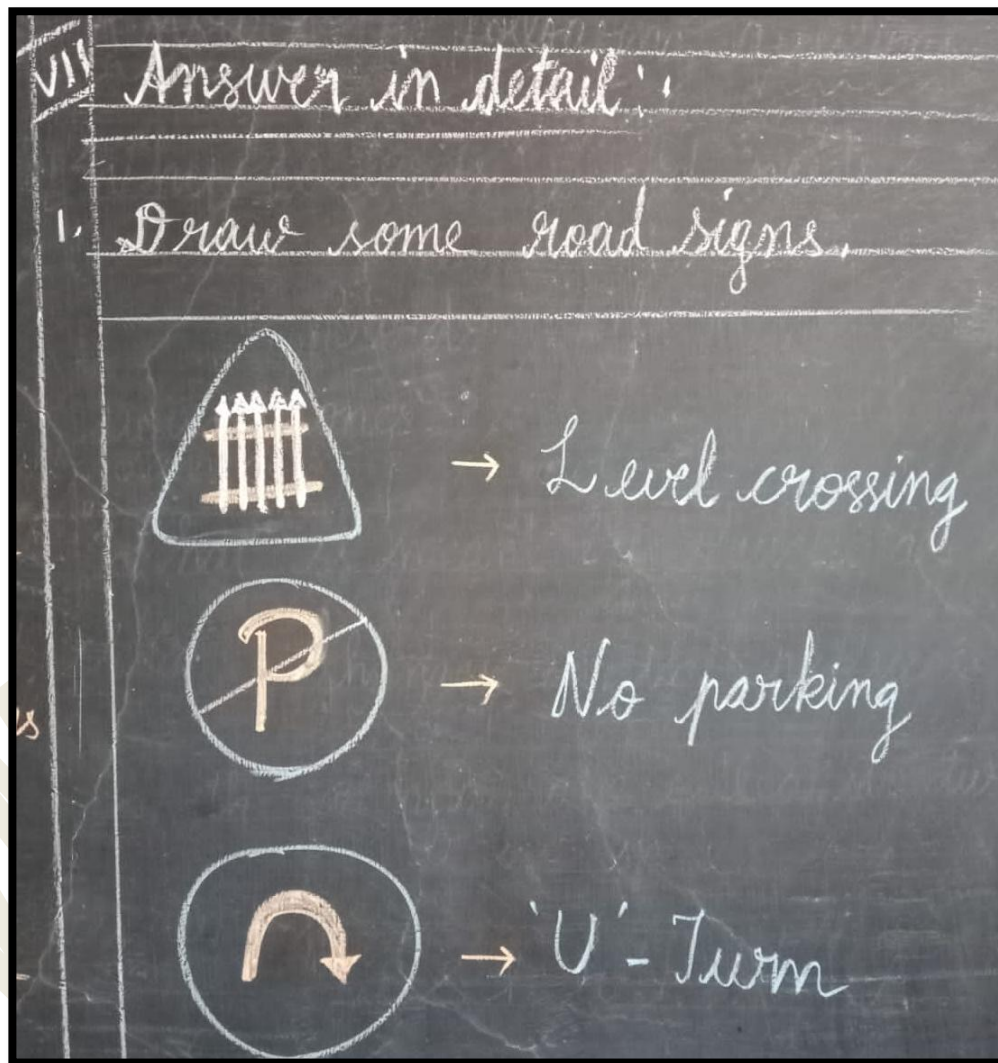 VII Answer in detail :
1. Draw some road signs.
→ Level crossing
P → No parking
→ 'U' - Turn
s